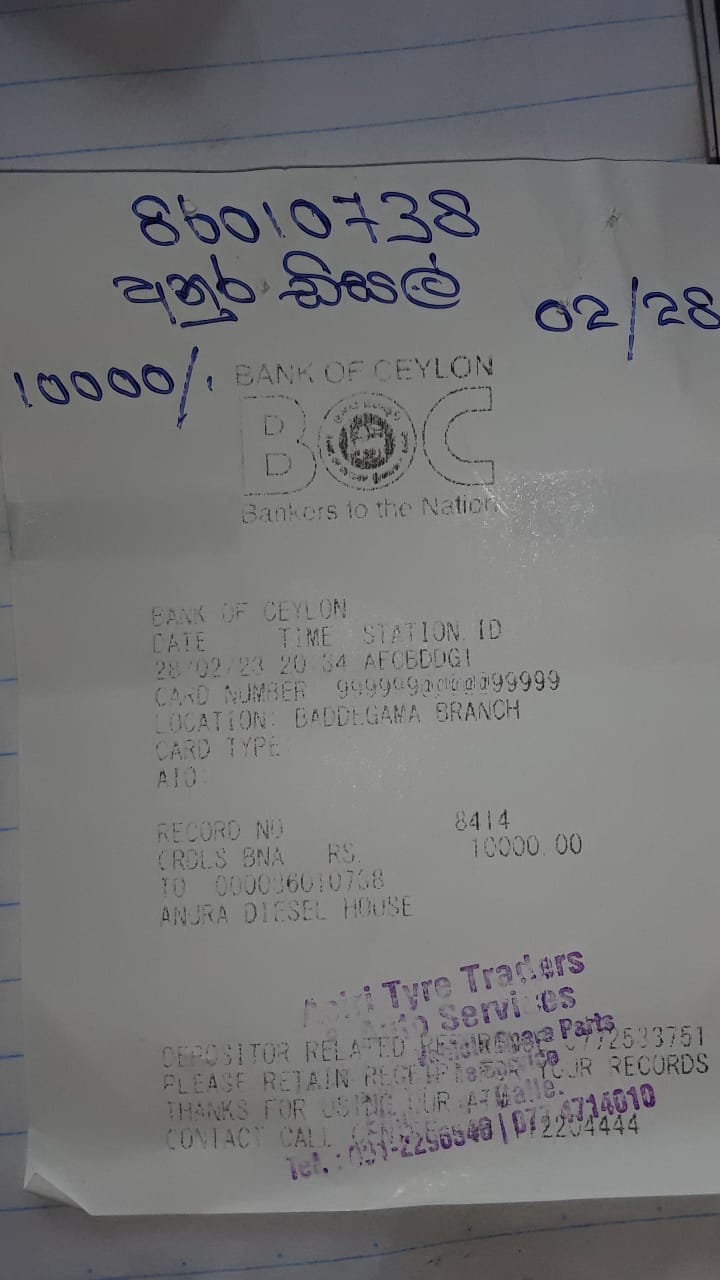 86010738
අනුර ඩීසල්
02/28
10000/.
BANK OF CEYLON
BOC
Bankers to the Nation
BANK OF CEYLON
DATE TIME STATION ID
28/02/23 20:34 AFCBDDG1
CARD NUMBER 999999@@@@@99999
LOCATION: BADDEGAMA BRANCH
CARD TYPE
AID:
RECORD NO 8414
CRDLS BNA RS. 10000.00
TO 000086010738
ANURA DIESEL HOUSE
Tyre Traders
Services
Spare Parts
DEPOSITOR RELATED 0772533751
PLEASE RETAIN RECEIPT FOR YOUR RECORDS
THANKS FOR USING OUR
Galle.
CONTACT CALL 112204444
Tel. : 091-2296549 | 077 4714010